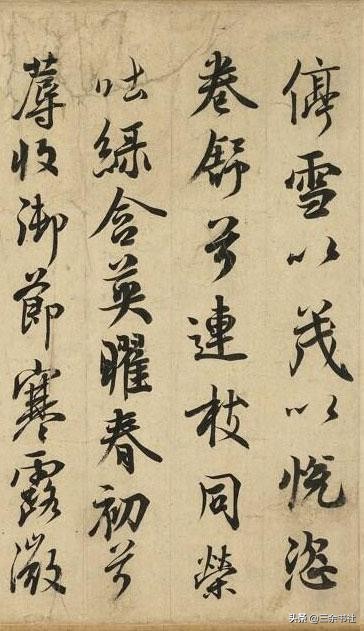 停雪以茂以悦恣
卷舒兮連枝同榮
吐綠含英曜春初兮
蓐收御節寒露微
头条 @三余书社